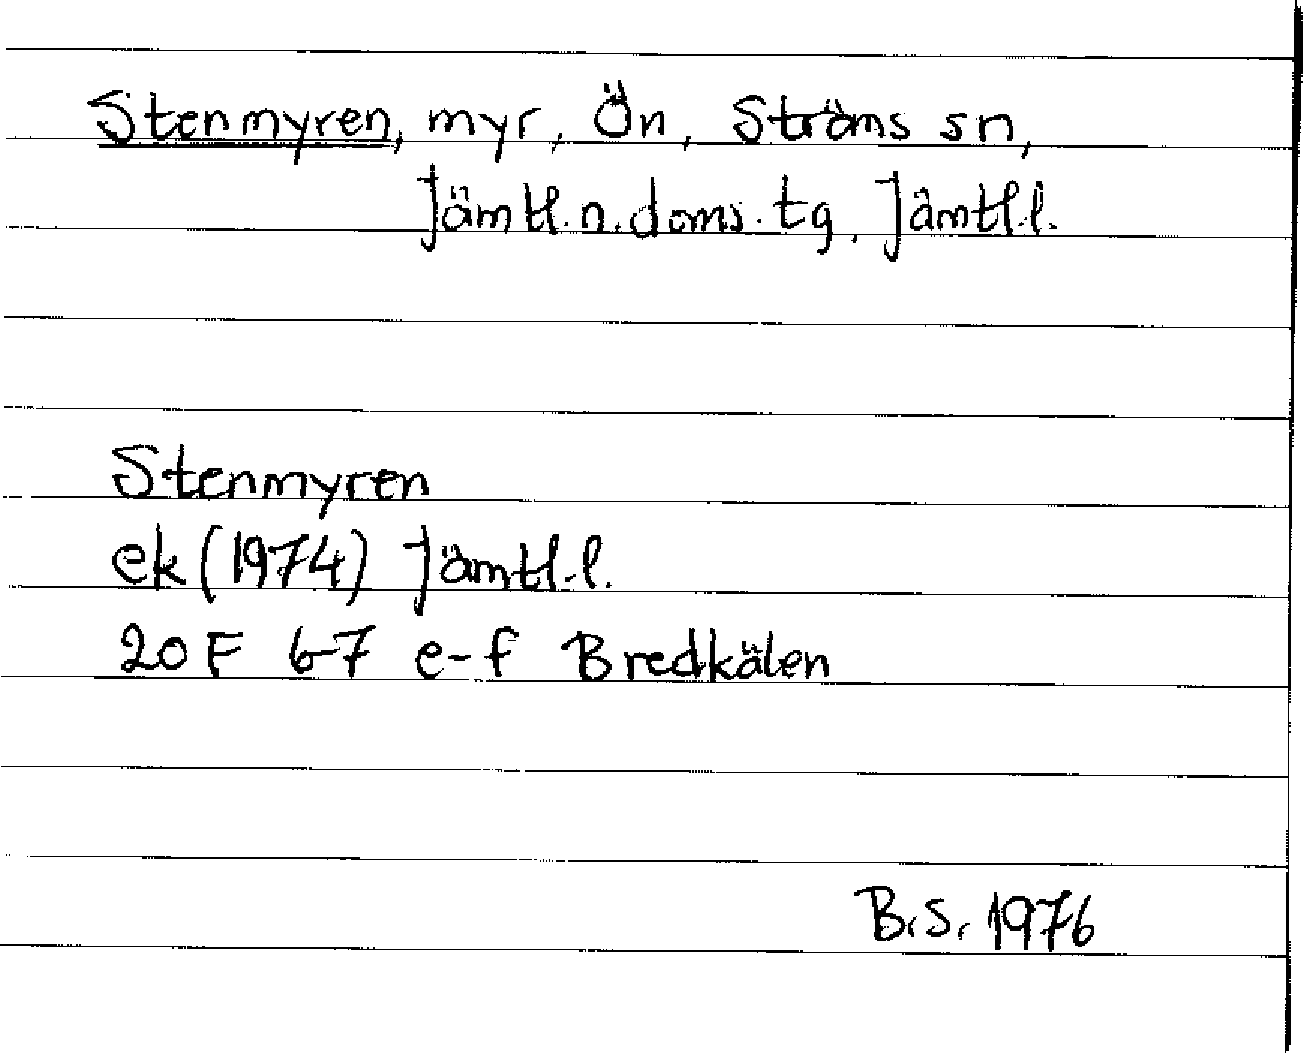 Stenmyren, myr, Ön, Ströms sn,
Jämtl.n.doms.tg, Jämtl.l.
Stenmyren
ek (1974) Jämtl.l.
20 F 6-7 e-f Bredkälen
B.S. 1976